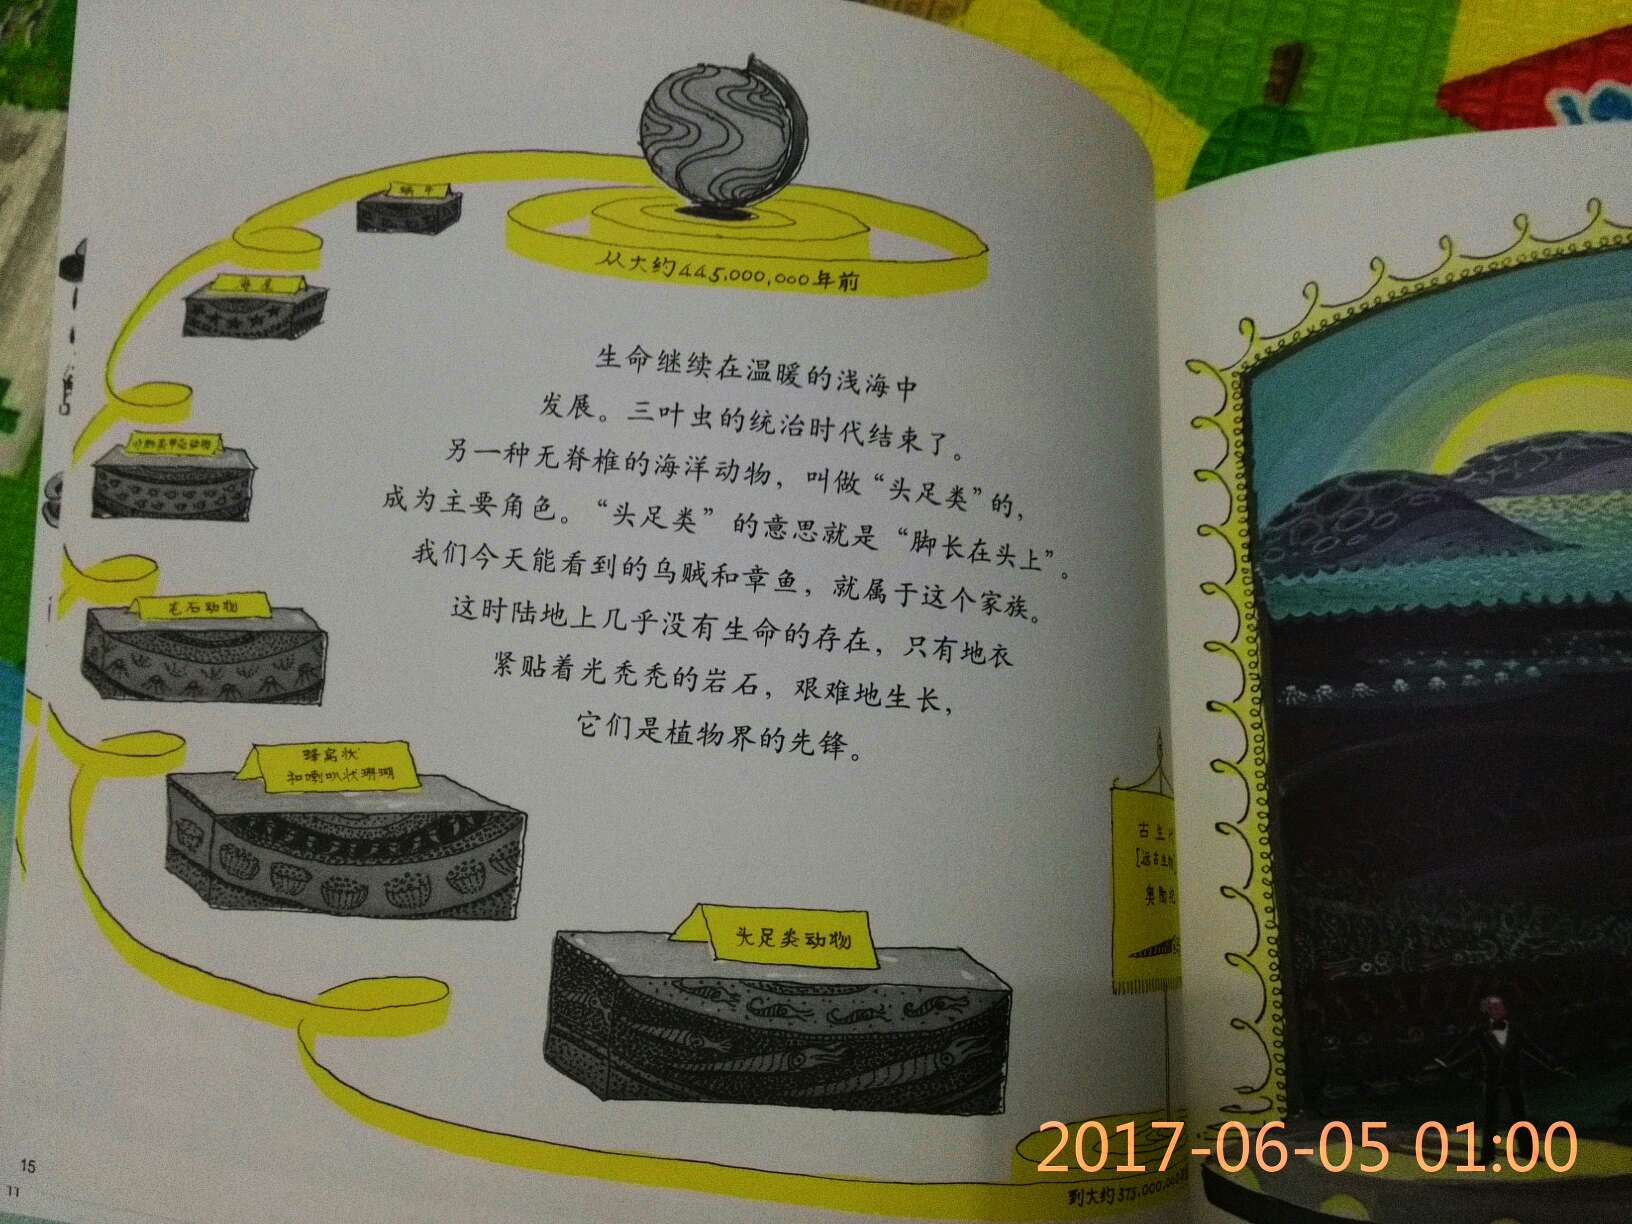 从大约445,000,000年前
蜗牛
海星
苔藓类甲壳动物
笔石动物
蜂窝状
和喇叭状珊瑚
头足类动物
生命继续在温暖的浅海中
发展。三叶虫的统治时代结束了。
另一种无脊椎的海洋动物，叫做“头足类”的，
成为主要角色。“头足类”的意思就是“脚长在头上”。
我们今天能看到的乌贼和章鱼，就属于这个家族。
这时陆地上几乎没有生命的存在，只有地衣
紧贴着光秃秃的岩石，艰难地生长，
它们是植物界的先锋。
古生
[远古生物
奥陶纪
到大约375,000,00
15
11
2017-06-05 01:00